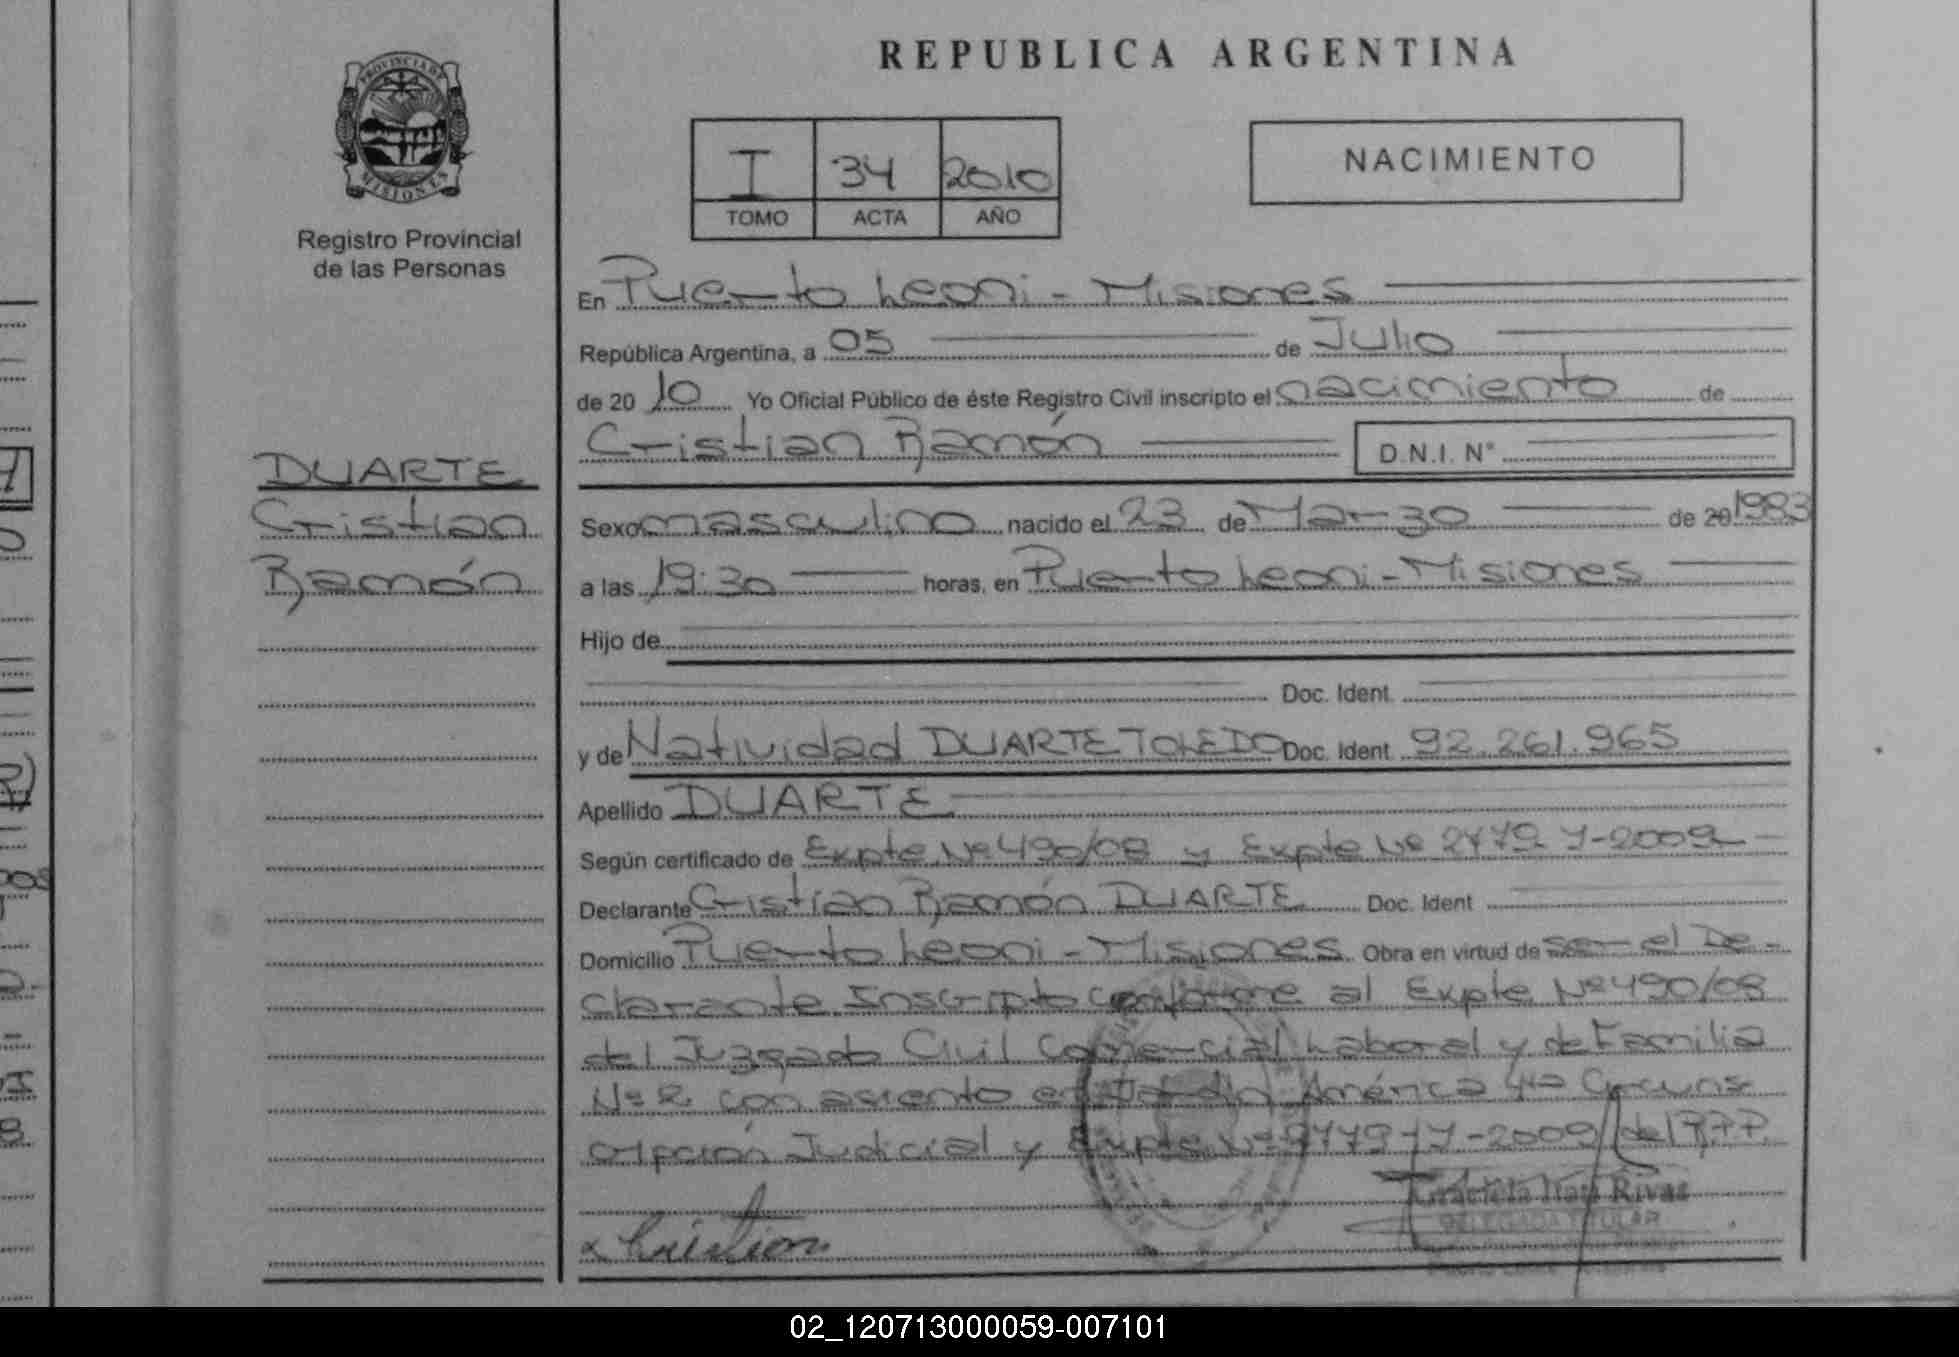 REPUBLICA ARGENTINA
PROVINCIA DE
MISIONES
Registro Provincial
de las Personas
I 34 2010
TOMO ACTA AÑO
NACIMIENTO
En Puerto Leoni - Misiones
República Argentina, a 05 de Julio
de 20 10 Yo Oficial Público de éste Registro Civil inscripto el nacimiento de
Cristian Ramón D.N.I. N°
DUARTE
Cristian
Ramón
Sexo masculino nacido el 23 de Marzo de 20 1983
a las 19:30 horas, en Puerto Leoni - Misiones
Hijo de
Doc. Ident.
y de Natividad DUARTE TOLEDO Doc. Ident. 92.261.965
Apellido DUARTE
Según certificado de Expte Nº 490/08 y Expte Nº 2779-Y-2009
Declarante Cristian Ramón DUARTE Doc. Ident
Domicilio Puerto Leoni - Misiones Obra en virtud de ser el De-
clarante Inscripto conforme al Expte Nº 490/08
del Juzgado Civil Comercial Laboral y de Familia
Nº 2 con asiento en Jardín América 4ta Circuns
cripción Judicial y Expte Nº -Y-2009 del R.P.P.
Rivas
DELEGADA TITULAR
x Cristian
02_120713000059-007101